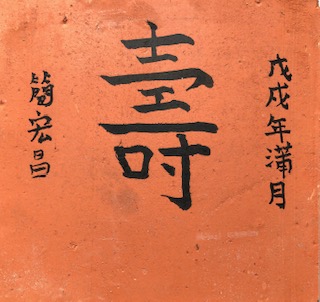 戊戌年滿月
壽
簡宏昌